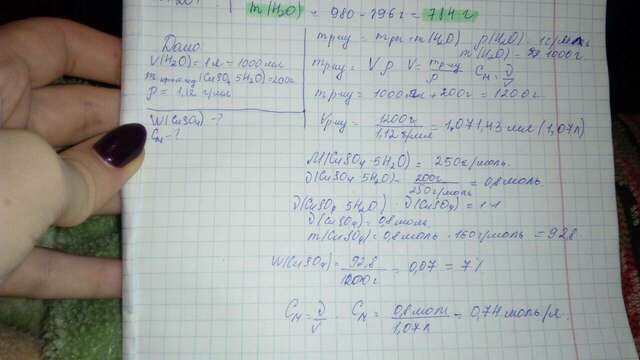 m(H₂O) = 980 - 196г = 784 г
Дано
V(H₂O) = 1л = 1000 мл
(CuSO₄ 5H₂O) = 200г
ρ = 1,12 г/мл
W(CuSO₄) - ?
Cм - ?
ρ(H₂O) = 1г/мл
m(H₂O) = 1000г
V = Cм = ν/V
= 1000 + 200г = 1200г
= 1200г / 1,12 г/мл = 1,071,43 мл (1,07л)
M(CuSO₄ 5H₂O) = 250г/моль.
ν(CuSO₄ 5H₂O) = 200г / 250г/моль = 0,8 моль.
ν(CuSO₄ 5H₂O) : ν(CuSO₄) = 1:1
ν(CuSO₄) = 0,8 моль
m(CuSO₄) = 0,8 моль · 160г/моль = 928
W(CuSO₄) = 92,8 / 1200г = 0,07 = 7%
Cм = ν/V Cм = 0,8 моль / 1,07л = 0,74 моль/л.